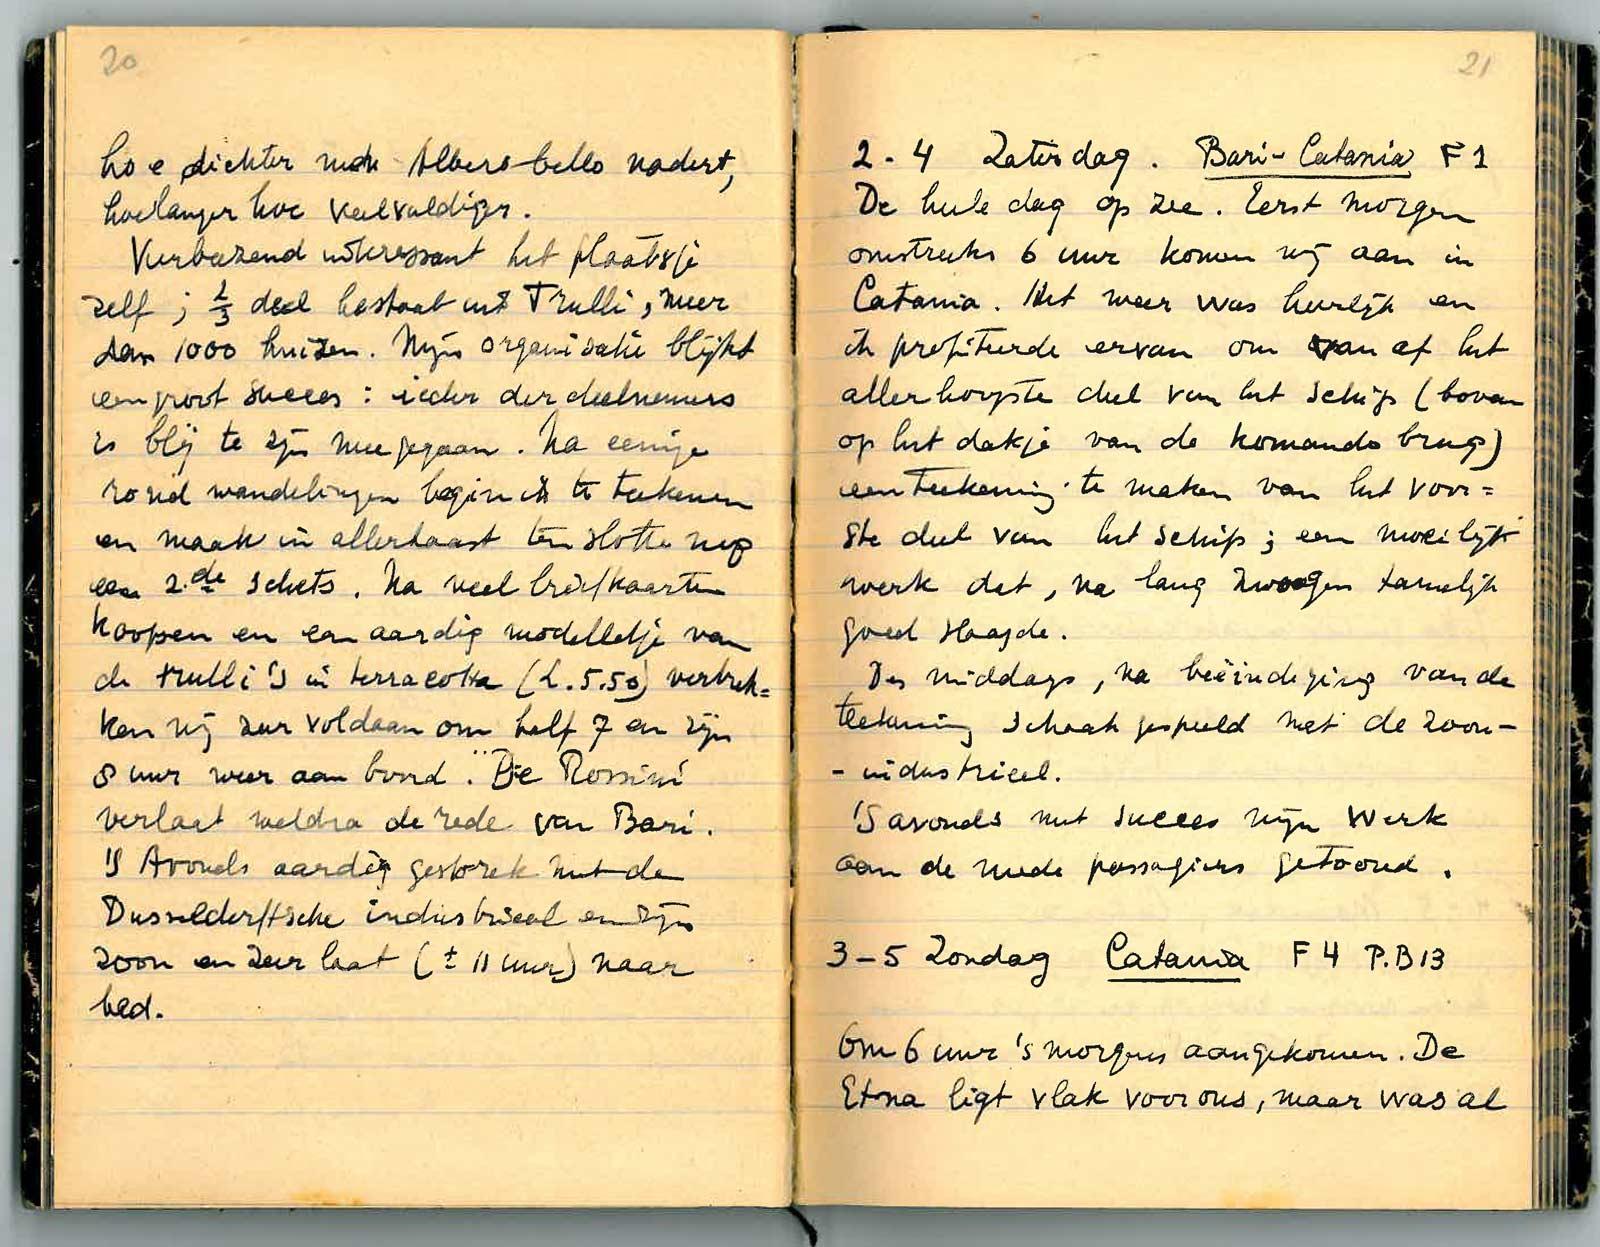 20
hoe dichter men Alberobello nadert,
hoelanger hoe veelvuldiger.
Verbazend interessant het plaatsje
zelf ; 2/3 deel bestaat uit Trulli, meer
dan 1000 huizen. Mijn organisatie blijkt
een groot succes : ieder der deelnemers
is blij te zijn meegegaan. Na eenige
rondwandelingen begin ik te teekenen
en maak in allerhaast ten slotte nog
een 2.de schets. Na veel briefkaarten
koopen en een aardig modelletje van
de trulli's in terracotta (L.5.50) vertrek=
ken wij zeer voldaan om half 7 en zijn
8 uur weer aan boord. De Rossini
verlaat weldra de rede van Bari.
'S Avonds aardig gesprek met de
Dusseldorftsche industrieel en zijn
zoon en zeer laat (± 11 uur) naar
bed.
21
2-4 Zaterdag. Bari-Catania F1
De heele dag op zee. Eerst morgen
omstreeks 6 uur komen wij aan in
Catania. Het weer was heerlijk en
ik profiteerde ervan om van af het
allerhoogste deel van het schip (boven
op het dakje van de komando brug)
een teekening te maken van het voor=
ste deel van het schip ; een moeilijk
werk dat, na lang zwoegen tamelijk
goed slaagde.
Des middags, na beëindiging van de
teekening schaak gespeeld met de zoon-
-industrieel.
'S avonds met succes mijn werk
aan de mede passagiers getoond.
3-5 Zondag Catania F4 P.B13
Om 6 uur 's morgens aangekomen. De
Etna ligt vlak voor ons, maar was al